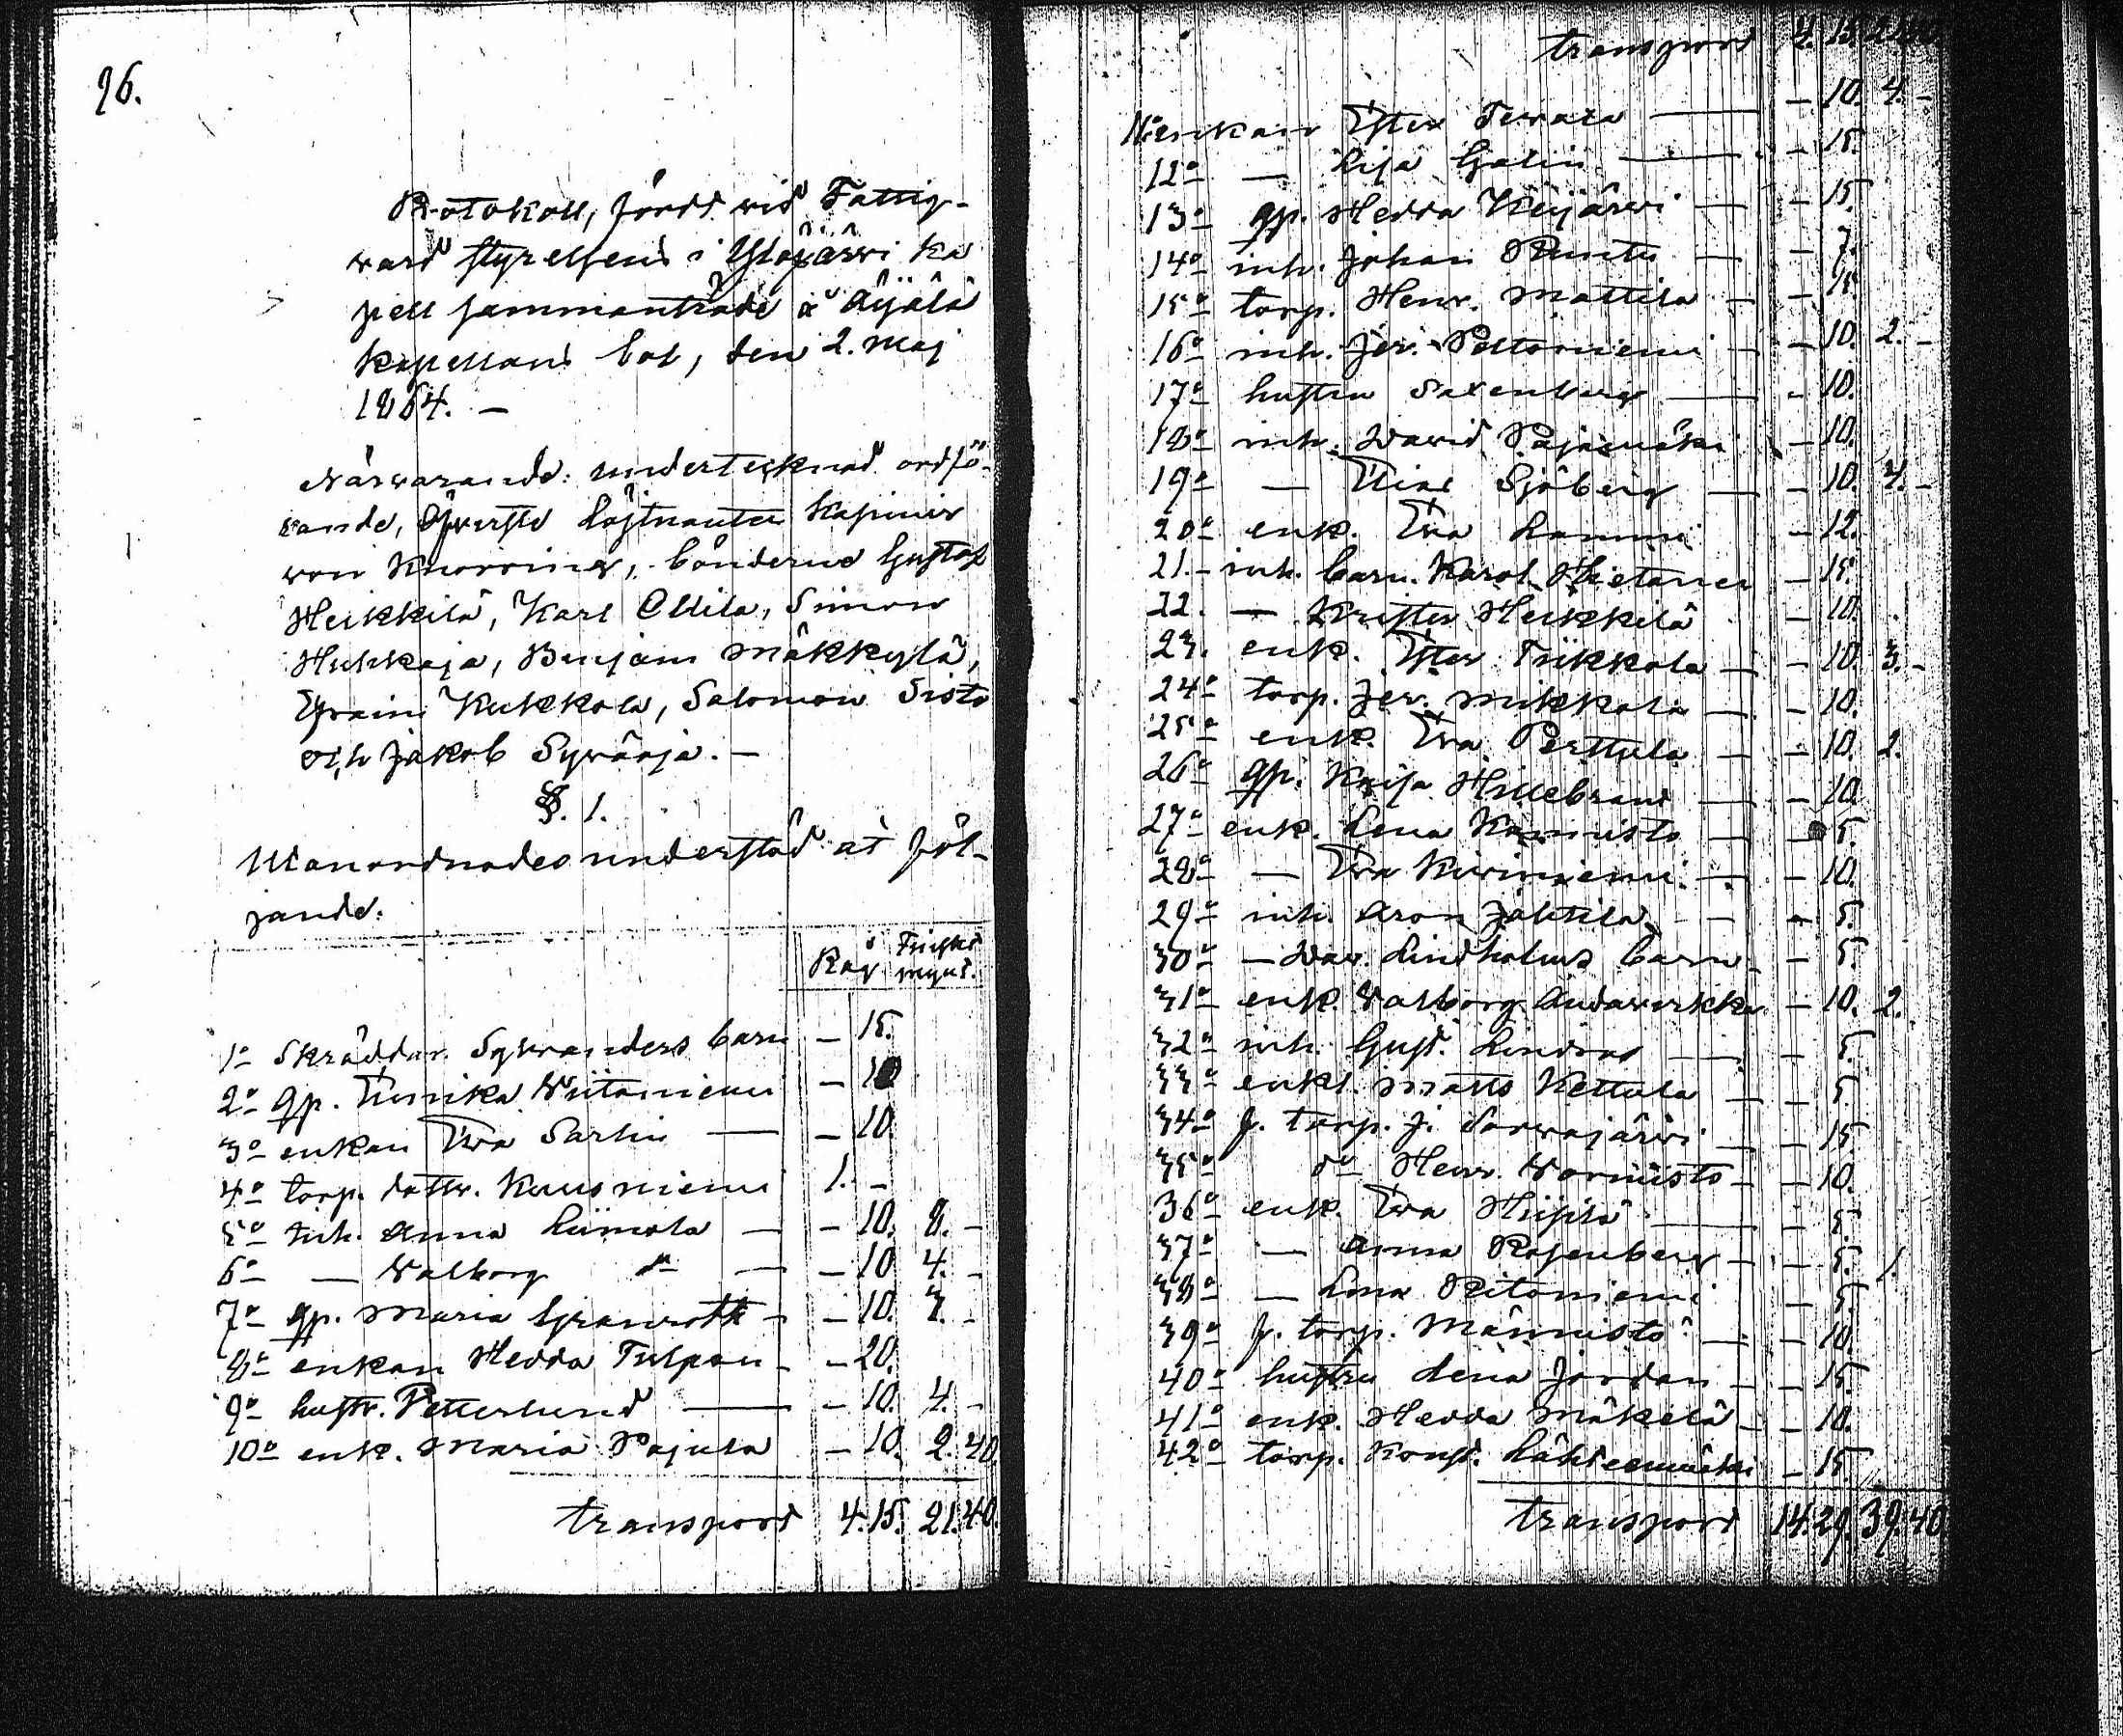 96.
Protokoll, fördt wid Fattig-
ward styrelsens i Ylöjärwi ka
pell sammanträde å Äijälä
kapellans bol, den 2. Maj
1864. —
Närwarande: undertecknad ordfö-
rande, Öfwerste Löjtnanten Kasimir
von Knorring, bönderne Gustaf
Heikkilä, Karl Ollila, Simon
Huhkaja, Benjam Mäkkylä,
Efraim Kukkola, Salomon Sisto
och Jakob Sywäoja. —
§. 1.
Utanordnades understöd åt föl-
jande:
Råg Finskt mynt.
1o Skräddar. Sylwanders barn — 15.
2o qp. Ulrika Wiitaniemi — 10
3o enkan Ewa Sarlin — — 10.
4o torp. dottr. Kuusniemi 1. —
5o Inh. Anna Liimola — — 10. 8. —
6o — Walborg do — — 10 4. —
7o qp. Maria Granroth — — 10. 3. —
8o enkan Hedda Tulpan — — 20.
9o hustr. Petterlund — — 10. 4. —
10o enk. Maria Pajula — 10. 2. 40.
transport 4. 15. 21. 40.
transport 4. 15. 21. 40.
11o enkan Ester Terala — — 10. 4. —
12o — Lisa Galin — — 15.
13o qp. Hedda Keijärwi — — 15.
14o inh. Johan Runtu — — 7.
15o torp. Henr. Mattila — — 15
16o inh. Jer. Peltoniemi — — 10. 2. —
17o hustru Saxenberg — — 10.
18o inh. Dawid Pajamäki — 10.
19o — Sjöberg — — 10. 4. —
20o enk. Ewa Lammi — 12.
21. — inh. barn. Karol. Hietanen — 15.
22. — Krister Heikkilä — 10.
23. enk. Ester Tiikkola — — 10. 3. —
24o torp. Jer. Mikkola — — 10.
25o enk. Ewa Perttula — — 10. 2.
26o qp. Kaisa Hillebrand — — 10.
27o enk. Lena Kannisto — — 5.
28o — Ewa Kiwiniemi. — — 10.
29o inh. Aron Jahtila — — 5.
30o — Daw. Lindholms barn — — 5.
31o enk. Walborg — 10. 2.
32o inh. Gust. Lindroos — — 5.
33o enkl. Matts Kettula — — 5.
34o f. torp. J. Sorwajärwi — — 15
35o do Henr. Wormisto — — 10.
36o enk. Ewa Heiskä — — 5.
37o — Anna Rosenberg — — 5. 1.
38o — Lena Ritoniemi — 5.
39o f. torp. Männistö — — 10.
40o hustru Lena Jordan — — 15.
41o enk. Hedda Mäkelä — — 10.
42o torp. Konst. Lähteenmäki — 15
transport 14. 29. 39. 40